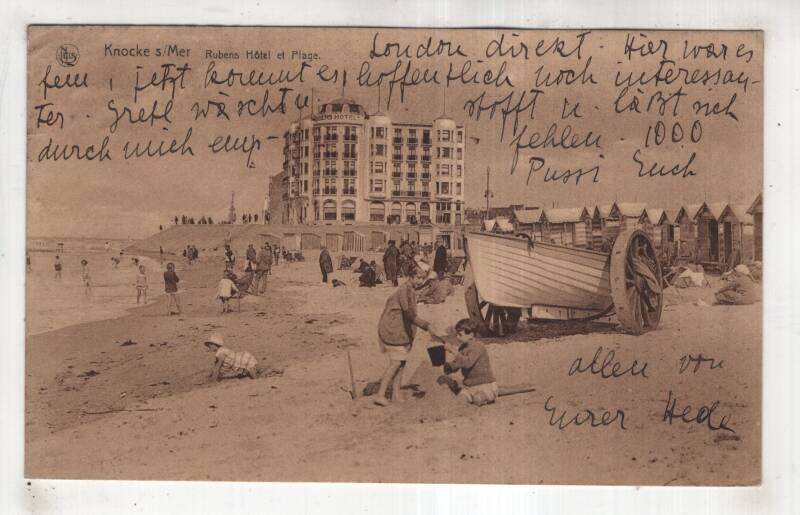 Nels
Knocke s/Mer Rubens Hôtel et Plage.
London direkt. Hier war es
fein, jetzt kommt es hoffentlich noch interessan-
ter. Gretl wäscht u. stofft u. läßt sich
durch mich emp- fehlen. 1000
Pussi Euch
RUBENS HOTEL
allen von
Eurer Hede